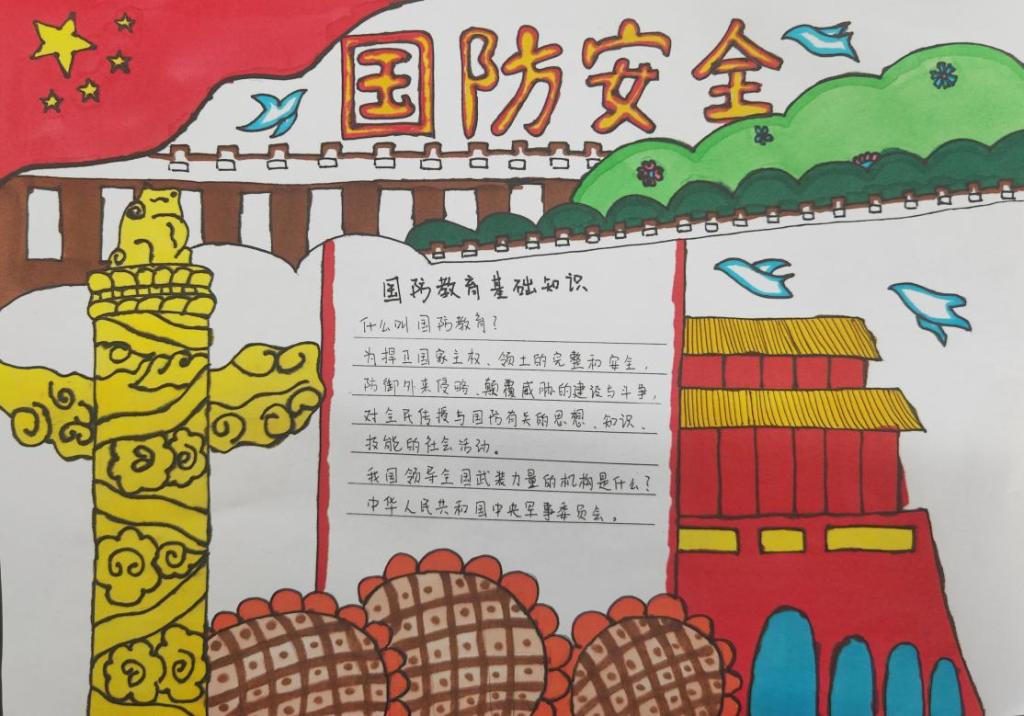 国防安全
国防教育基础知识
什么叫国防教育?
为捍卫国家主权、领土的完整和安全,
防御外来侵略、颠覆威胁的建设与斗争,
对全民传授与国防有关的思想、知识、
技能的社会活动。
我国领导全国武装力量的机构是什么?
中华人民共和国中央军事委员会。